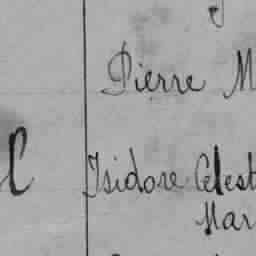 Pierre M
Isidore Célest
Mar